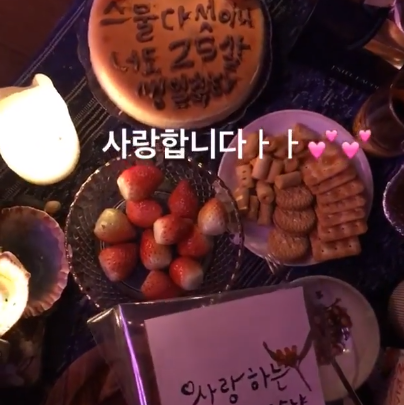 스물다섯이니
너도 25살
생일축하
사랑합니다ㅏㅏ💕💕
사랑하는